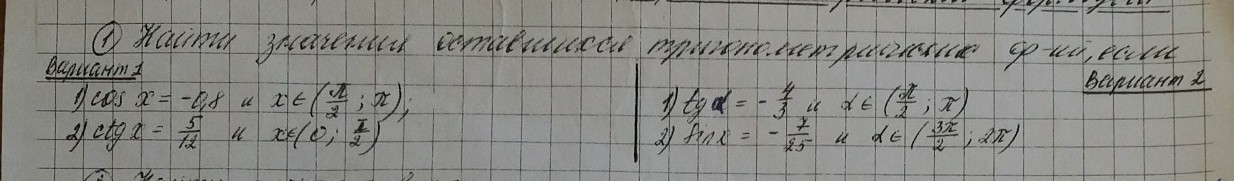 ① Найти значения оставшихся тригонометрических ф-ий, если
Вариант 1
1) cos x = -0,8 и x ∈ (π/2 ; π);
2) ctg x = 5/12 и x ∈ (0 ; π/2)
Вариант 2
1) tg α = - 4/3 и α ∈ (π/2 ; π)
2) sin x = - 7/25 и α ∈ (3π/2 ; 2π)